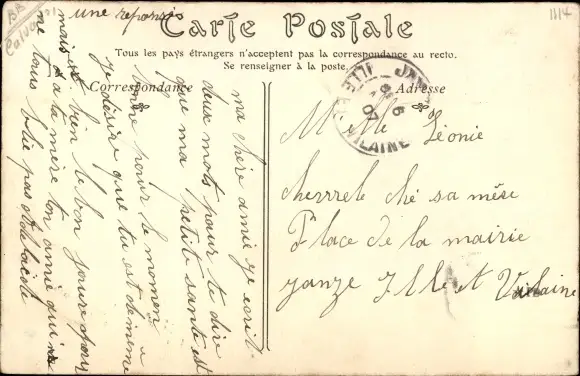 Carte Postale
Tous les pays étrangers n'acceptent pas la correspondance au recto.
Se renseigner à la poste.
Correspondance
Adresse
ma chère amie je écrit
deux mots pour te dire
que ma petite santé est
bonne pour le moment
je désire que tu est de même
mais bien le bonjour pour
a ta mère ton amie qui
me tous pas
une reponse
Melle Léonie
cherrele ché sa mére
Place de la mairie
janze Ille et Vilaine
JANZE
ILLE ET VILAINE
6
07
1114